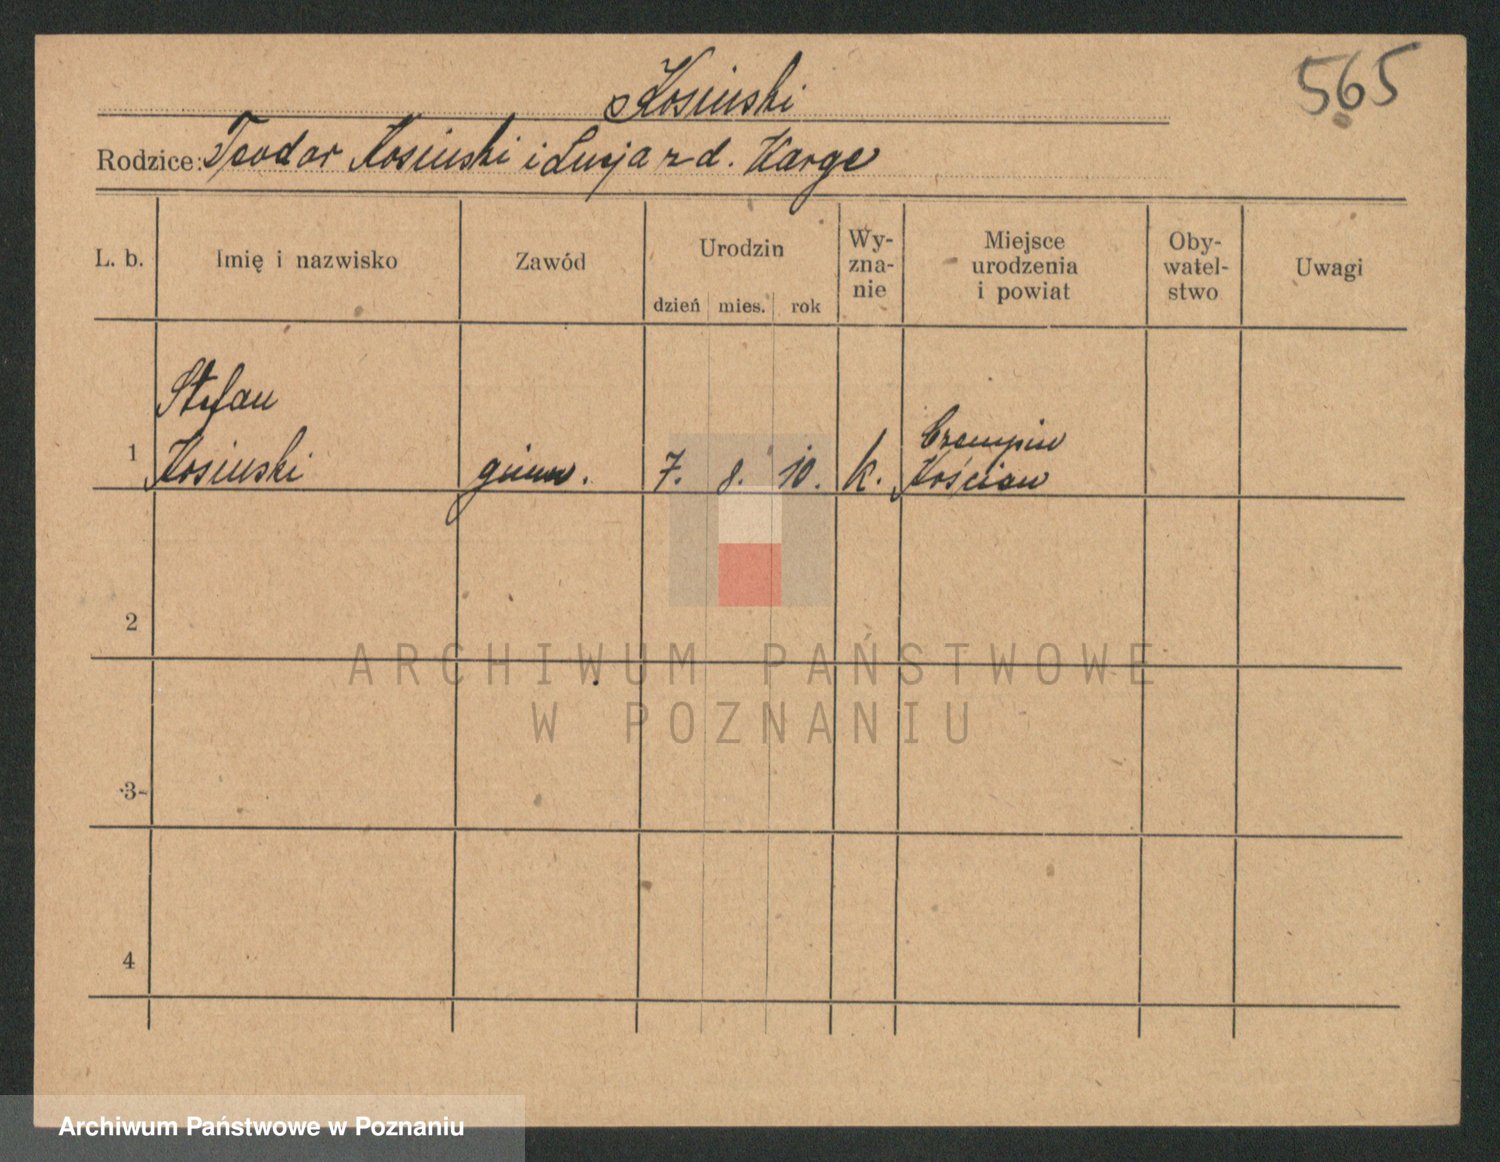 565
Kosinski
Rodzice: Teodor Kosinski i Lucja z d. Karge
L. b.
Imię i nazwisko
Zawód
Urodzin
dzień mies. rok
Wy-
zna-
nie
Miejsce
urodzenia
i powiat
Oby-
watel-
stwo
Uwagi
Stefan
1 Kosinski gimn. 7. 8. 10. k. Czempin
Kościan
2
ARCHIWUM PAŃSTWOWE
W POZNANIU
3
4
Archiwum Państwowe w Poznaniu